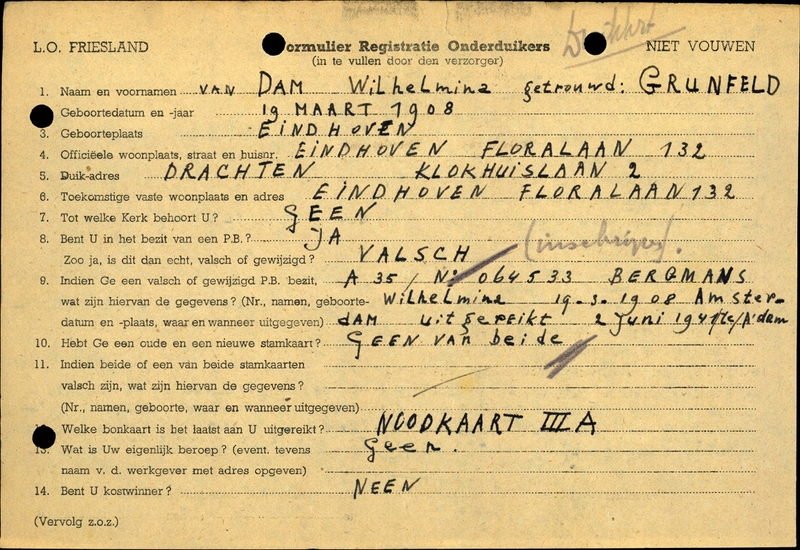 L.O. FRIESLAND
ormulier Registratie Onderduikers
NIET VOUWEN
(in te vullen door den verzorger)
1. Naam en voornamen VAN DAM Wilhelmina getrouwd: GRUNFELD
Geboortedatum en -jaar 19 MAART 1908
3. Geboorteplaats EINDHOVEN
4. Officiëele woonplaats, straat en huisnr. EINDHOVEN FLORALAAN 132
5. Duik-adres DRACHTEN KLOKHUISLAAN 2
6. Toekomstige vaste woonplaats en adres EINDHOVEN FLORALAAN 132
7. Tot welke Kerk behoort U? GEEN
8. Bent U in het bezit van een P.B.? JA
Zoo ja, is dit dan echt, valsch of gewijzigd? VALSCH (inschrijven).
9. Indien Ge een valsch of gewijzigd P.B. bezit, A 35 / No 064533 BERGMANS
wat zijn hiervan de gegevens? (Nr., namen, geboorte- Wilhelmina 19-3-1908 Amster-
datum en -plaats, waar en wanneer uitgegeven) dAM uitgereikt 2 Juni 1941 te/A'dam
10. Hebt Ge een oude en een nieuwe stamkaart? GEEN van beide
11. Indien beide of een van beide stamkaarten
valsch zijn, wat zijn hiervan de gegevens?
(Nr., namen, geboorte, waar en wanneer uitgegeven)
Welke bonkaart is het laatst aan U uitgereikt? NOODKAART III A
13. Wat is Uw eigenlijk beroep? (event. tevens Geen.
naam v. d. werkgever met adres opgeven)
14. Bent U kostwinner? NEEN
(Vervolg z.o.z.)